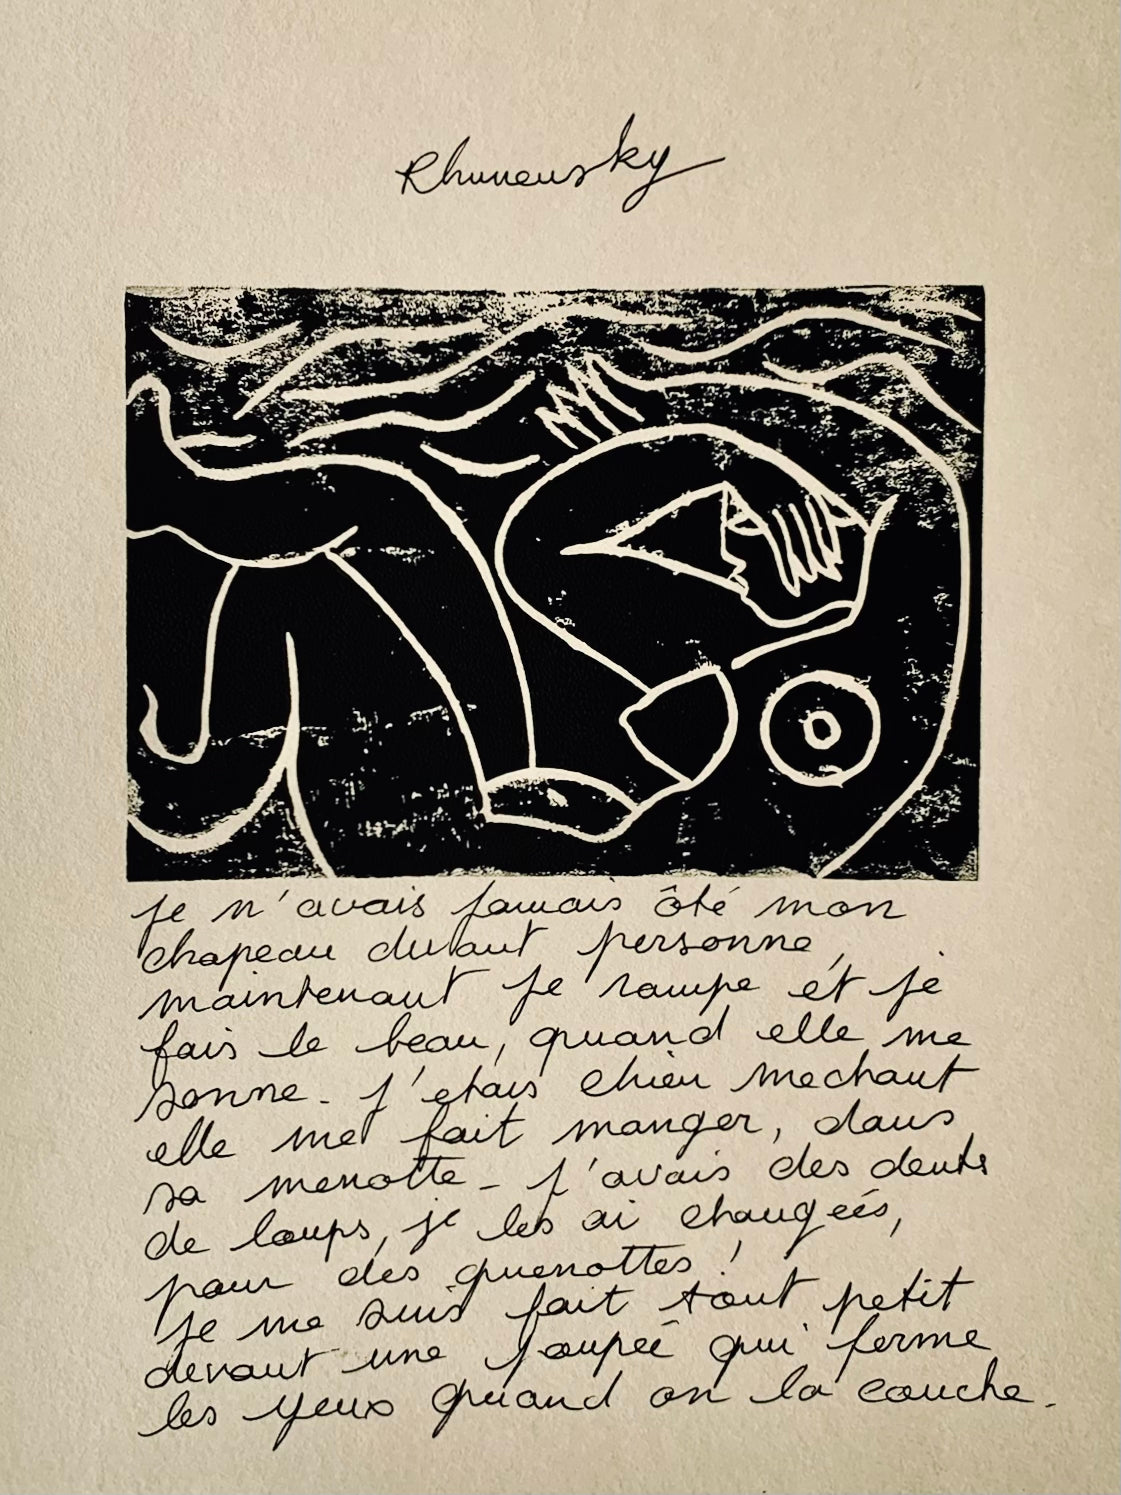 Rhumeursky
Je n'avais jamais ôté mon
chapeau devant personne,
maintenant je rampe et je
fais le beau, quand elle me
sonne. J'etais chien mechant
elle me fait manger, dans
sa menotte. J'avais des dents
de loups, je les ai changées,
pour des quenottes !
Je me suis fait tout petit
devant une poupée qui ferme
les yeux quand on la couche.